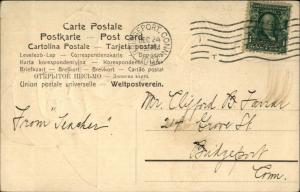 Carte Postale
Postkarte - Post card
Cartolina Postale - Tarjeta postal
Levelező-Lap - Correspondenzkarte
Karta korespondencyjna - Korespondenční
Briefkaart - Brevkort - Brefkort
ОТКРЫТОЕ ПИСЬМО
Union postale universelle - Weltpostverein.
Mr. Clifford B. Farrar
From "Teacher"
214 Grove St
Bridgeport
Conn.